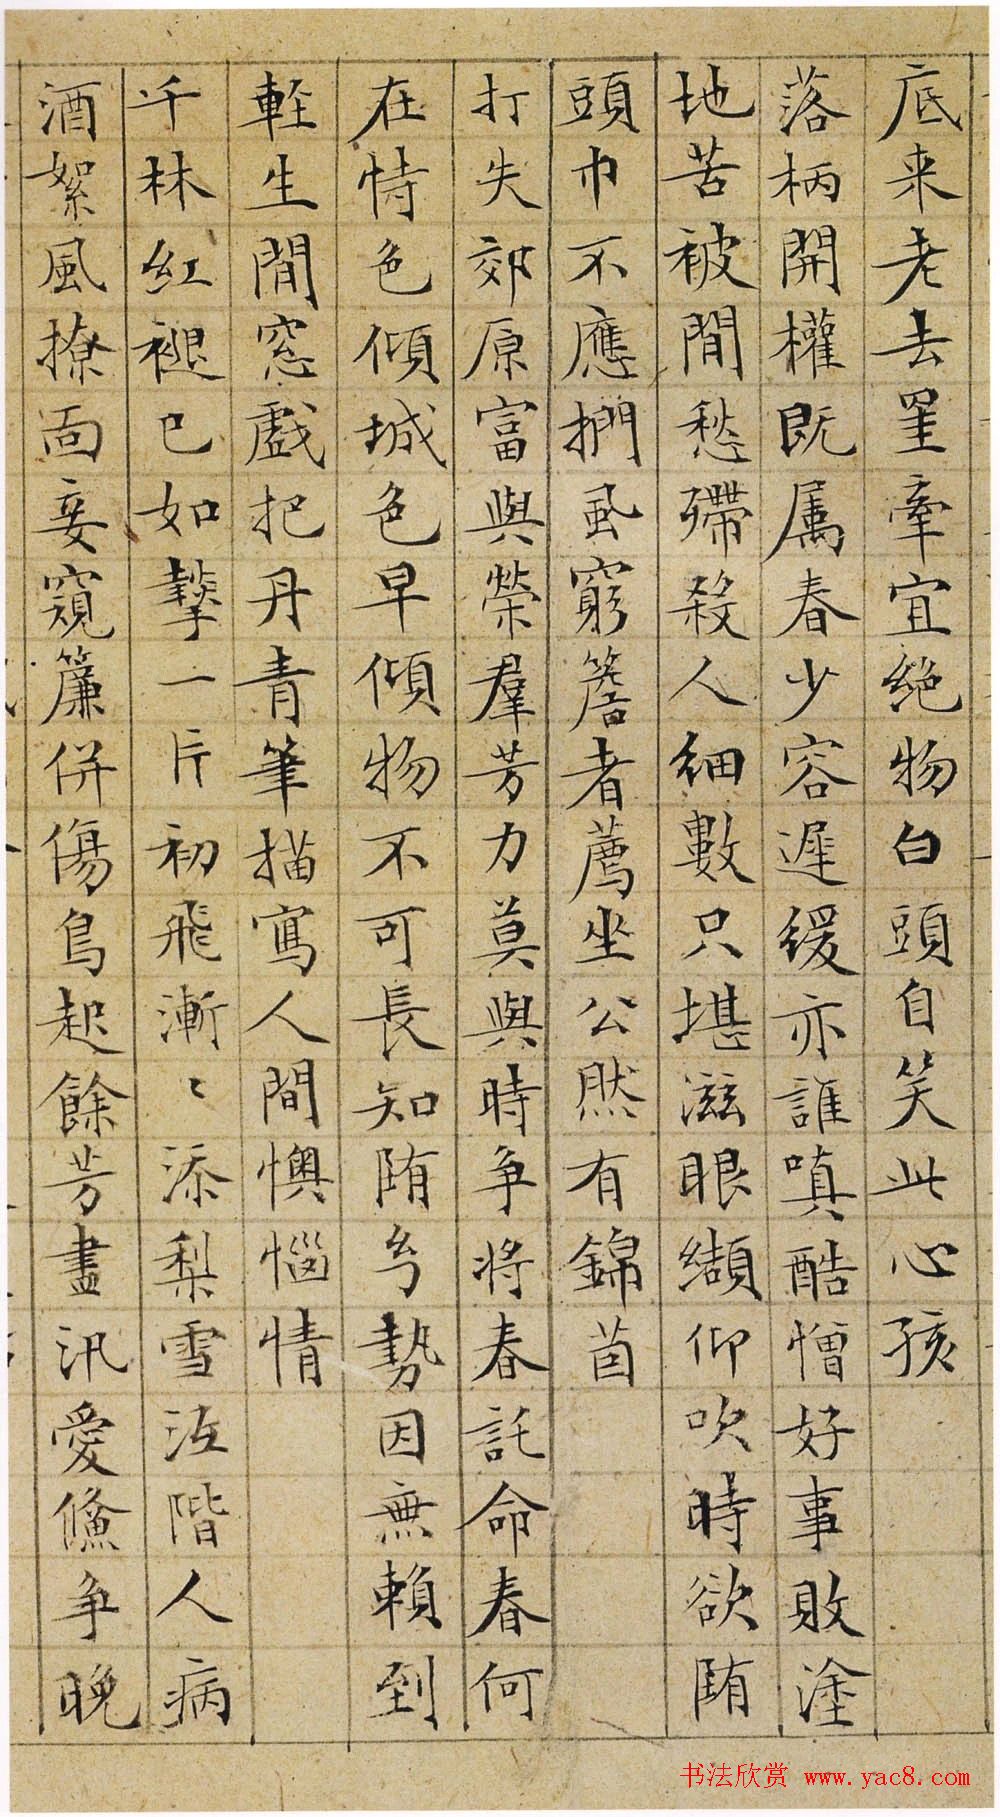 底来老去罣牽宜絶物白頭自笑此心孩
落柄開權既属春少容遲緩亦誰嗔酷憎好事敗塗
地苦被閒愁殢殺人細數只堪滋眼纈仰吹時欲墮
頭巾不應捫虱窮簷者薦坐公然有錦茵
打失郊原富與榮羣芳力莫與時争將春託命春何
在恃色傾城色早傾物不可長知墮幻勢因無賴到
輊生閒窓戲把丹青筆描寫人間懊惱情
千林紅褪已如摯一片初飛漸〻添梨雪沍階人病
酒絮風撩面妾窺簾併傷鳥起餘芳盡汛愛鯈争
晚
书法欣赏 www.yac8.com